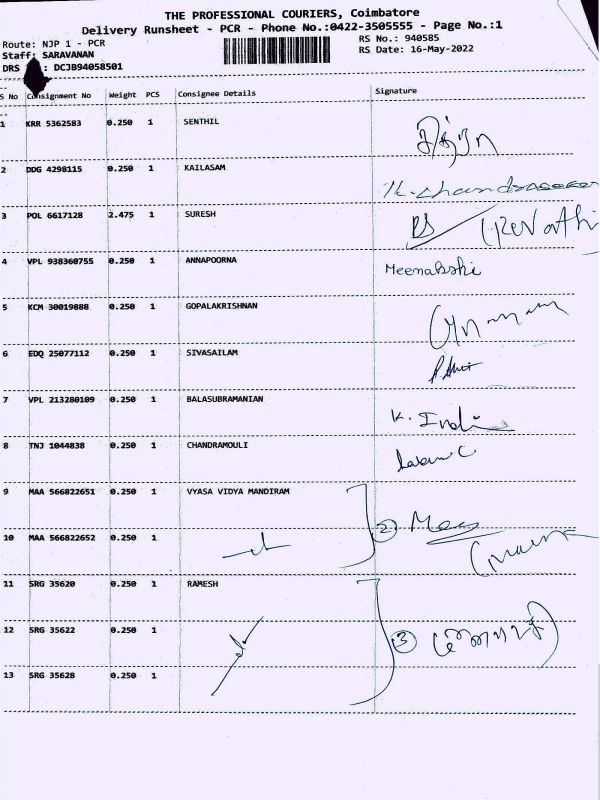 THE PROFESSIONAL COURIERS, Coimbatore
Delivery Runsheet - PCR - Phone No.:0422-3505555 - Page No.:1
Route: NJP 1 - PCR
RS No.: 940585
Staff: SARAVANAN
RS Date: 16-May-2022
DRS : DCJB94058501
S No Consignment No Weight PCS Consignee Details Signature
1 KRR 5362583 0.250 1 SENTHIL
2 DDG 4298115 0.250 1 KAILASAM K. Chandrasekar
3 POL 6617128 2.475 1 SURESH RS (Revathi
4 VPL 938360755 0.250 1 ANNAPOORNA Meenakshi
5 KCM 30019888 0.250 1 GOPALAKRISHNAN
6 EDQ 25077112 0.250 1 SIVASAILAM
7 VPL 213280109 0.250 1 BALASUBRAMANIAN K. Indi
8 TNJ 1044838 0.250 1 CHANDRAMOULI
9 MAA 566822651 0.250 1 VYASA VIDYA MANDIRAM
10 MAA 566822652 0.250 1 2
11 SRG 35620 0.250 1 RAMESH
12 SRG 35622 0.250 1 3
13 SRG 35628 0.250 1